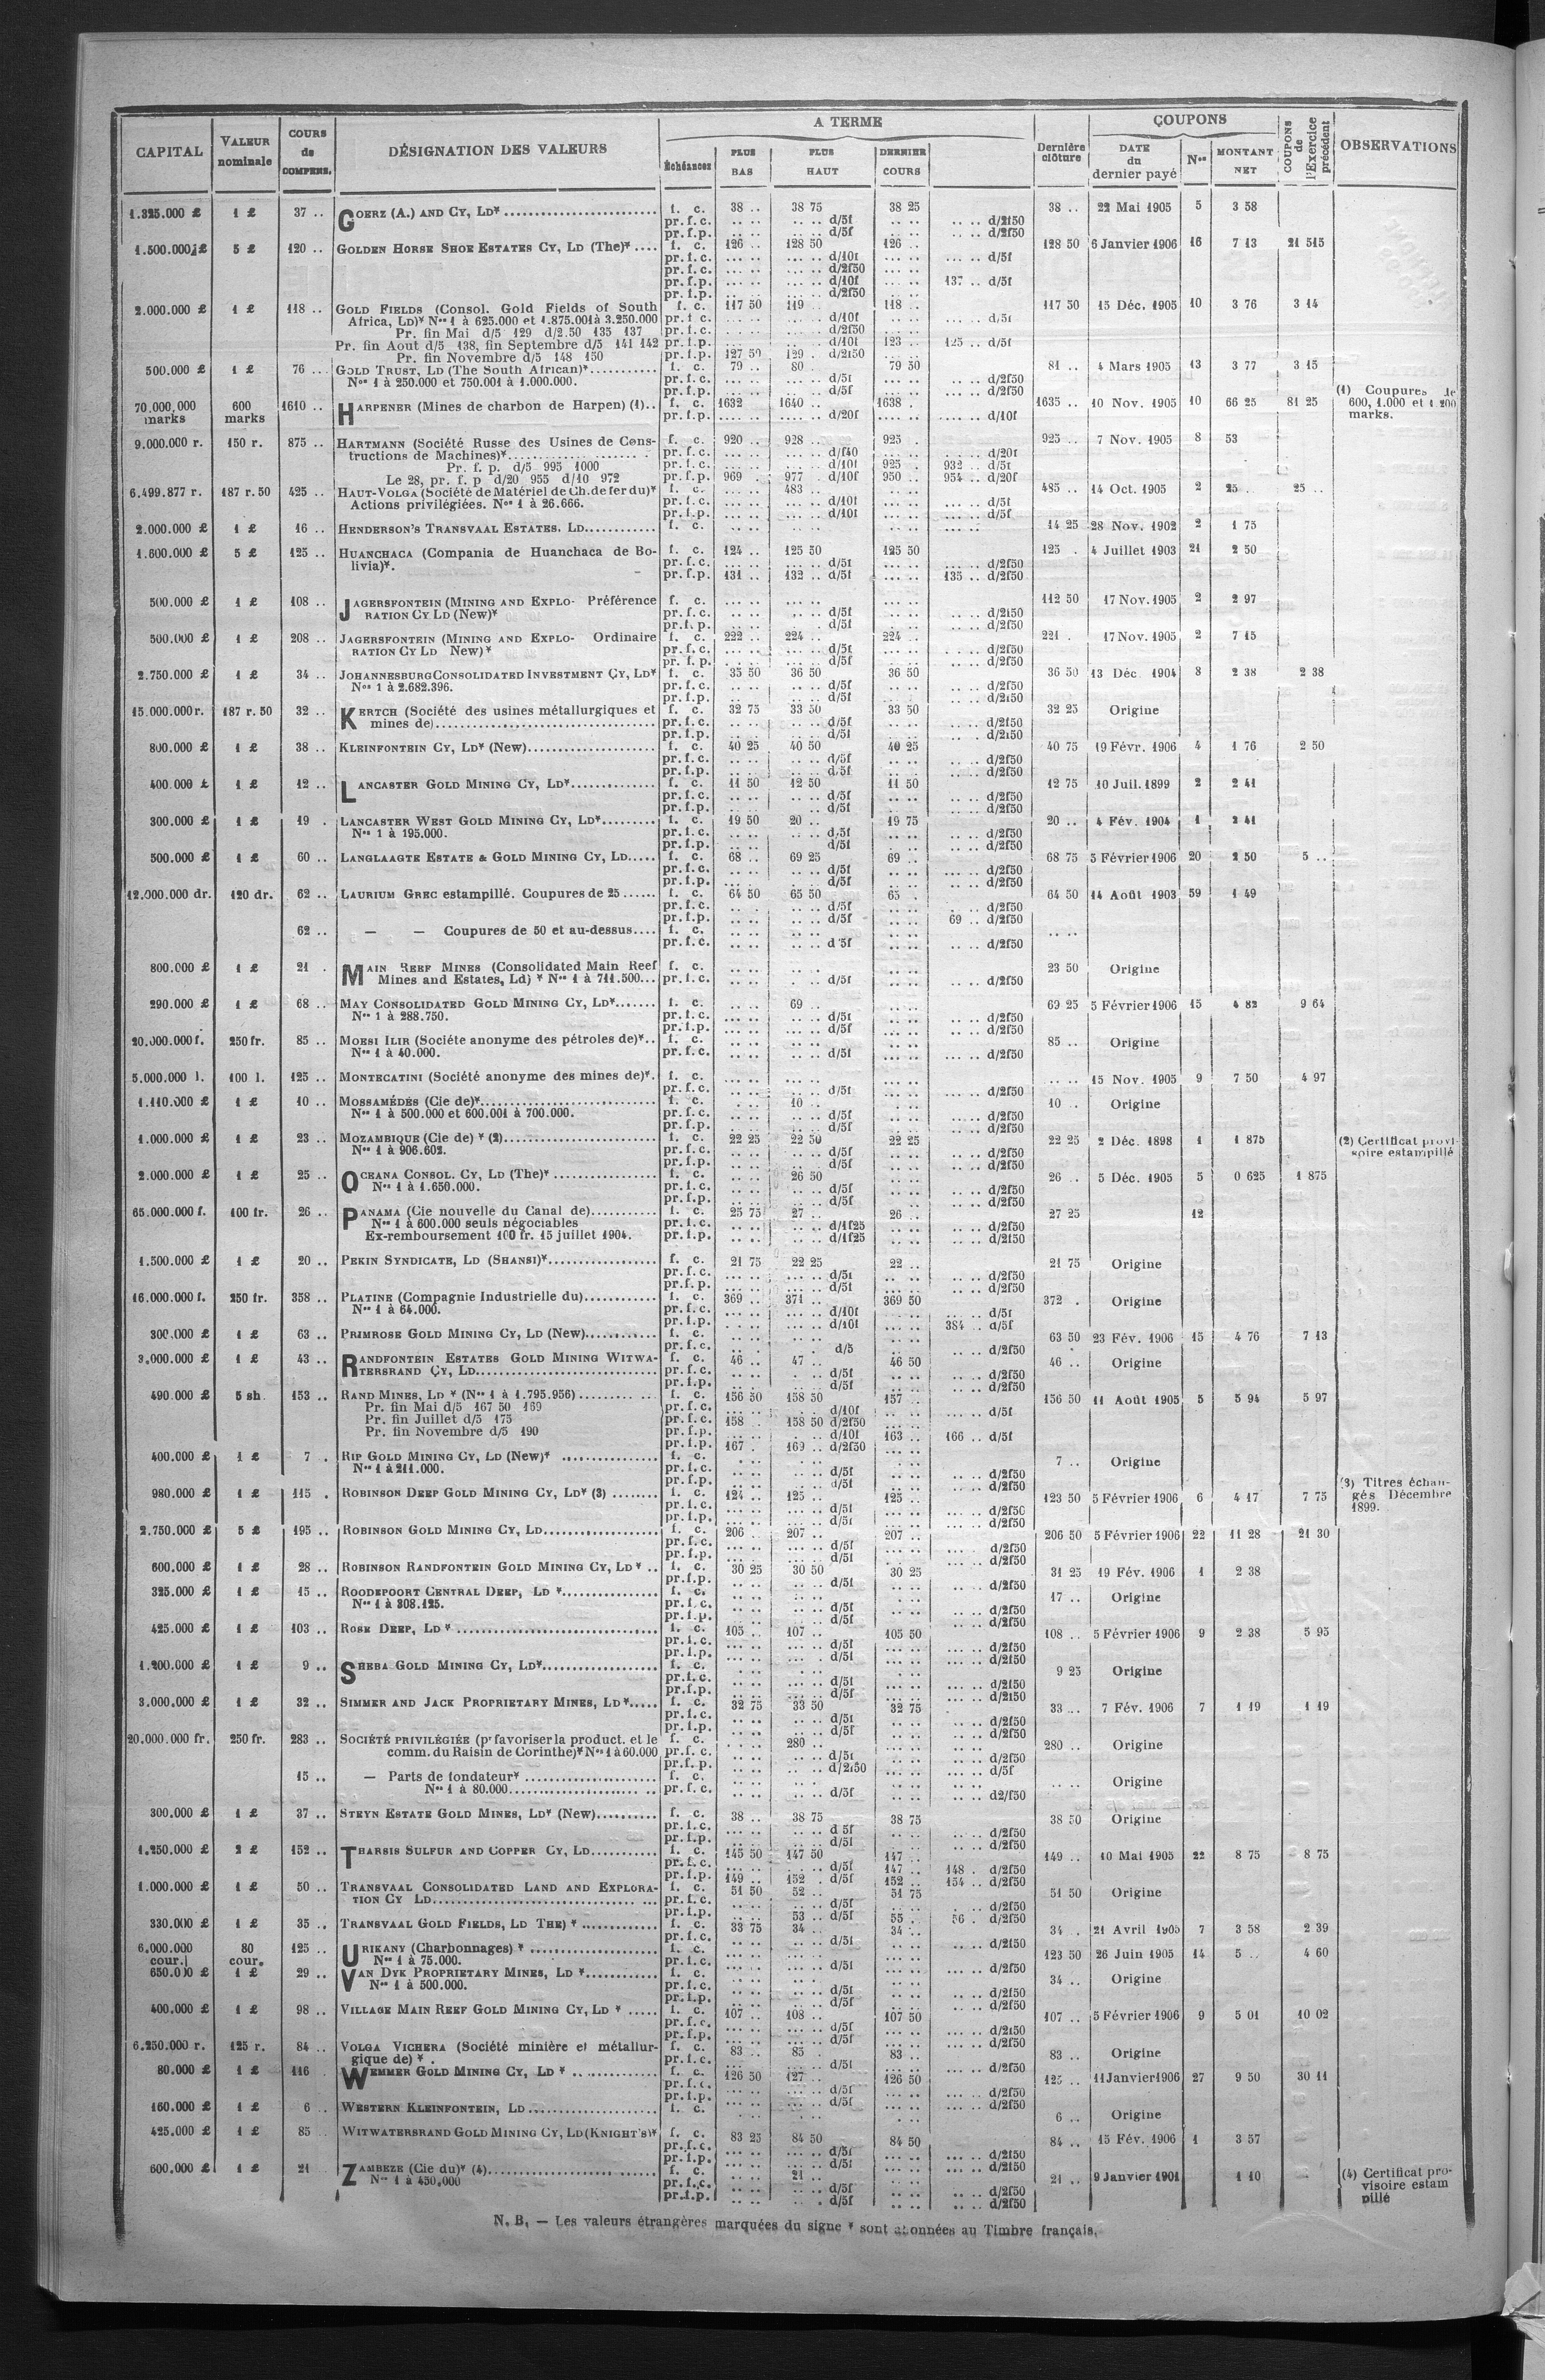 CAPITAL | VALEUR nominale | COURS de COMPENS. | DÉSIGNATION DES VALEURS | A TERME | Dernière clôture | COUPONS | COUPONS de l'Exercice précédent | OBSERVATIONS
Échéances | PLUS BAS | PLUS HAUT | DERNIER COURS | DATE du dernier payé | Nos | MONTANT NET
1.325.000 £ | 1 £ | 37 .. | GOERZ (A.) AND CY, LD* | f. c. | 38 .. | 38 75 | 38 25 | 38 .. | 22 Mai 1905 | 5 | 3 58
pr. f. c. | d/5f | d/2f50
pr. f. p. | d/5f | d/2f50
1.500.000 £ | 5 £ | 120 .. | GOLDEN HORSE SHOE ESTATES CY, LD (The)* | f. c. | 126 .. | 128 50 | 126 .. | 128 50 | 6 Janvier 1906 | 16 | 7 13 | 21 515
pr. f. c. | d/10f | d/5f
pr. f. c. | d/2f50
pr. f. p. | d/10f | 137 .. d/5f
pr. f. p. | d/2f50
2.000.000 £ | 1 £ | 118 .. | GOLD FIELDS (Consol. Gold Fields of South | f. c. | 117 50 | 119 .. | 118 .. | 117 50 | 15 Déc. 1905 | 10 | 3 76 | 3 14
Africa, LD)* Nos 1 à 625.000 et 1.875.001 à 3.250.000 | pr. f. c. | d/10f | d/5f
Pr. fin Mai d/5 129 d/2.50 135 137 | pr. f. c. | d/2f50
Pr. fin Aout d/5 138, fin Septembre d/5 141 142 | pr. f. p. | d/10f | 123 .. | 125 .. d/5f
Pr. fin Novembre d/5 148 150 | pr. f. p. | 127 50 | 129 . d/2f50
500.000 £ | 1 £ | 76 .. | GOLD TRUST, LD (The South African)* | f. c. | 79 .. | 80 . | 79 50 | 81 .. | 4 Mars 1905 | 13 | 3 77 | 3 15
Nos 1 à 250.000 et 750.001 à 1.000.000. | pr. f. c. | d/5f | d/2f50
pr. f. p. | d/5f | d/2f50 | (1) Coupures de
70.000.000 marks | 600 marks | 1610 .. | HARPENER (Mines de charbon de Harpen) (1).. | f. c. | 1632 | 1640 .. | 1638 .. | 1635 .. | 10 Nov. 1905 | 10 | 66 25 | 81 25 | 600, 1.000 et 1.200 marks.
pr. f. p. | d/20f | d/10f
9.000.000 r. | 150 r. | 875 .. | HARTMANN (Société Russe des Usines de Cons- | f. c. | 920 .. | 928 .. | 925 . | 925 .. | 7 Nov. 1905 | 8 | 53
tructions de Machines)* | pr. f. c. | d/f40 | d/20f
Pr. f. p. d/5 995 1000 | pr. f. c. | d/10f | 925 . | 932 .. d/5f
Le 28, pr. f. p d/20 955 d/10 972 | pr. f. p. | 969 . | 977 . d/10f | 950 .. | 954 .. d/20f
6.499.877 r. | 187 r. 50 | 425 .. | HAUT-VOLGA (Société de Matériel de Ch. de fer du)* | f. c. | 483 .. | 485 .. | 14 Oct. 1905 | 2 | 25 .. | 25 ..
Actions privilégiées. Nos 1 à 26.666. | pr. f. c. | d/10f | d/5f
pr. f. p. | d/10f | d/5f
2.000.000 £ | 1 £ | 16 .. | HENDERSON'S TRANSVAAL ESTATES. LD | f. c. | 14 25 | 28 Nov. 1902 | 2 | 1 75
1.600.000 £ | 5 £ | 125 .. | HUANCHACA (Compania de Huanchaca de Bo- | f. c. | 124 .. | 125 50 | 125 50 | 125 . | 4 Juillet 1903 | 21 | 2 50
livia)*. | pr. f. c. | d/5f | d/2f50
pr. f. p. | 131 .. | 132 .. d/5f | 135 .. d/2f50
500.000 £ | 1 £ | 108 .. | JAGERSFONTEIN (MINING AND EXPLO- Préférence | f. c. | 112 50 | 17 Nov. 1905 | 2 | 2 97
RATION CY LD (New)* | pr. f. c. | d/5f | d/2f50
pr. f. p. | d/5f | d/2f50
500.000 £ | 1 £ | 208 .. | JAGERSFONTEIN (MINING AND EXPLO- Ordinaire | f. c. | 222 .. | 224 .. | 224 .. | 221 . | 17 Nov. 1905 | 2 | 7 15
RATION CY LD New)* | pr. f. c. | d/5f | d/2f50
pr. f. p. | d/5f | d/2f50
2.750.000 £ | 1 £ | 34 .. | JOHANNESBURG CONSOLIDATED INVESTMENT CY, LD* | f. c. | 35 50 | 36 50 | 36 50 | 36 50 | 13 Déc 1904 | 8 | 2 38 | 2 38
Nos 1 à 2.682.396. | pr. f. c. | d/5f | d/2f50
pr. f. p. | d/5f | d/2f50
15.000.000 r. | 187 r. 50 | 32 .. | KERTCH (Société des usines métallurgiques et | f. c. | 32 75 | 33 50 | 33 50 | 32 25 | Origine
mines de) | pr. f. c. | d/5f | d/2f50
pr. f. p. | d/5f | d/2f50
800.000 £ | 1 £ | 38 .. | KLEINFONTEIN CY, LD* (New) | f. c. | 40 25 | 40 50 | 40 25 | 40 75 | 19 Févr. 1906 | 4 | 1 76 | 2 50
pr. f. c. | d/5f | d/2f50
pr. f. p. | d/5f | d/2f50
400.000 £ | 1 £ | 12 .. | LANCASTER GOLD MINING CY, LD* | f. c. | 11 50 | 12 50 | 11 50 | 12 75 | 10 Juil. 1899 | 2 | 2 41
pr. f. c. | d/5f | d/2f50
pr. f. p. | d/5f | d/2f50
300.000 £ | 1 £ | 19 . | LANCASTER WEST GOLD MINING CY, LD* | f. c. | 19 50 | 20 .. | 19 75 | 20 .. | 4 Fév. 1904 | 1 | 2 41
Nos 1 à 195.000. | pr. f. c. | d/5f | d/2f50
pr. f. p. | d/5f | d/2f50
500.000 £ | 1 £ | 60 .. | LANGLAAGTE ESTATE & GOLD MINING CY, LD | f. c. | 68 .. | 69 25 | 69 .. | 68 75 | 5 Février 1906 | 20 | 2 50 | 5 ..
pr. f. c. | d/5f | d/2f50
pr. f. p. | d/5f | d/2f50
12.000.000 dr. | 120 dr. | 62 .. | LAURIUM GREC estampillé. Coupures de 25 | f. c. | 64 50 | 65 50 | 65 . | 64 50 | 14 Août 1903 | 59 | 1 49
pr. f. c. | d/5f | d/2f50
pr. f. p. | d/5f | 69 .. d/2f50
62 .. | — — Coupures de 50 et au-dessus | f. c.
pr. f. c. | d 5f | d/2f50
800.000 £ | 1 £ | 21 . | MAIN REEF MINES (Consolidated Main Reef | f. c. | 23 50 | Origine
Mines and Estates, Ld) * Nos 1 à 711.500 | pr. f. c. | d/5f | d/2f50
290.000 £ | 1 £ | 68 .. | MAY CONSOLIDATED GOLD MINING CY, LD* | f. c. | 69 .. | 69 25 | 5 Février 1906 | 15 | 4 82 | 9 64
Nos 1 à 288.750. | pr. f. c. | d/5f | d/2f50
pr. f. p. | d/5f | d/2f50
20.000.000 f. | 250 fr. | 85 .. | MOESI ILIR (Sociéte anonyme des pétroles de)*.. | f. c. | 85 .. | Origine
Nos 1 à 40.000. | pr. f. c. | d/5f | d/2f50
5.000.000 l. | 100 l. | 125 .. | MONTECATINI (Société anonyme des mines de)*. | f. c. | 15 Nov. 1905 | 9 | 7 50 | 4 97
pr. f. c. | d/5f | d/2f50
1.110.000 £ | 1 £ | 10 .. | MOSSAMÉDÈS (Cie de)* | f. c. | 10 .. | 10 .. | Origine
Nos 1 à 500.000 et 600.001 à 700.000. | pr. f. c. | d/5f | d/2f50
pr. f. p. | d/5f | d/2f50
1.000.000 £ | 1 £ | 23 .. | MOZAMBIQUE (Cie de) * (2) | f. c. | 22 25 | 22 50 | 22 25 | 22 25 | 2 Déc. 1898 | 1 | 1 875 | (2) Certificat provi-
Nos 1 à 906.602. | pr. f. c. | d/5f | d/2f50 | soire estampillé
pr. f. p. | d/5f | d/2f50
2.000.000 £ | 1 £ | 25 .. | OCEANA CONSOL. CY, LD (The)* | f. c. | 26 50 | 26 .. | 5 Déc. 1905 | 5 | 0 625 | 1 875
Nos 1 à 1.650.000. | pr. f. c. | d/5f | d/2f50
pr. f. p. | d/5f | d/2f50
65.000.000 f. | 100 fr. | 26 .. | PANAMA (Cie nouvelle du Canal de) | f. c. | 25 75 | 27 .. | 26 .. | 27 25 | 12
Nos 1 à 600.000 seuls négociables | pr. f. c. | d/1f25 | d/2f50
Ex-remboursement 100 fr. 15 juillet 1904. | pr. f. p. | d/1f25 | d/2f50
1.500.000 £ | 1 £ | 20 .. | PEKIN SYNDICATE, LD (SHANSI)* | f. c. | 21 75 | 22 25 | 22 .. | 21 75 | Origine
pr. f. c. | d/5f | d/2f50
pr. f. p. | d/5f | d/2f50
16.000.000 f. | 250 fr. | 358 .. | PLATINE (Compagnie Industrielle du) | f. c. | 369 .. | 371 .. | 369 50 | 372 . | Origine
Nos 1 à 64.000. | pr. f. c. | d/10f | d/5f
pr. f. p. | d/10f | 384 .. d/5f
300.000 £ | 1 £ | 63 .. | PRIMROSE GOLD MINING CY, LD (New) | f. c. | 63 50 | 23 Fév. 1906 | 15 | 4 76 | 7 13
pr. f. c. | d/5 | d/2f50
3.000.000 £ | 1 £ | 43 .. | RANDFONTEIN ESTATES GOLD MINING WITWA- | f. c. | 46 .. | 47 .. | 46 50 | 46 .. | Origine
TERSRAND CY, LD | pr. f. c. | d/5f | d/2f50
pr. f. p. | d/5f | d/2f50
490.000 £ | 5 sh. | 153 .. | RAND MINES, LD * (Nos 1 à 1.795.956) | f. c. | 156 50 | 158 50 | 157 .. | 156 50 | 11 Août 1905 | 5 | 5 94 | 5 97
Pr. fin Mai d/5 167 50 169 | pr. f. c. | d/10f | d/5f
Pr. fin Juillet d/5 175 | pr. f. c. | 158 .. | 158 50 d/2f50
Pr. fin Novembre d/5 190 | pr. f. p. | d/10f | 163 .. | 166 .. d/5f
pr. f. p. | 167 . | 169 .. d/2f50
400.000 £ | 1 £ | 7 . | RIP GOLD MINING CY, LD (New)* | f. c. | 7 .. | Origine
Nos 1 à 211.000. | pr. f. c. | d/5f | d/2f50
pr. f. p. | d/5f | d/2f50 | (3) Titres échan-
980.000 £ | 1 £ | 115 . | ROBINSON DEEP GOLD MINING CY, LD* (3) | f. c. | 124 .. | 125 .. | 125 .. | 123 50 | 5 Février 1906 | 6 | 4 17 | 7 75 | gés Décembre 1899.
pr. f. c. | d/5f | d/2f50
pr. f. p. | d/5f | d/2f50
2.750.000 £ | 5 £ | 195 .. | ROBINSON GOLD MINING CY, LD | f. c. | 206 .. | 207 .. | 207 .. | 206 50 | 5 Février 1906 | 22 | 11 28 | 21 30
pr. f. c. | d/5f | d/2f50
pr. f. p. | d/5f | d/2f50
600.000 £ | 1 £ | 28 .. | ROBINSON RANDFONTEIN GOLD MINING CY, LD * .. | f. c. | 30 25 | 30 50 | 30 25 | 31 25 | 19 Fév. 1906 | 1 | 2 38
pr. f. p. | d/5f | d/2f50
325.000 £ | 1 £ | 15 .. | ROODEPOORT CENTRAL DEEP, LD * | f. c. | 17 .. | Origine
Nos 1 à 308.125. | pr. f. c. | d/5f | d/2f50
pr. f. p. | d/5f | d/2f50
425.000 £ | 1 £ | 103 .. | ROSE DEEP, LD * | f. c. | 105 .. | 107 .. | 105 50 | 108 .. | 5 Février 1906 | 9 | 2 38 | 5 95
pr. f. c. | d/5f | d/2f50
pr. f. p. | d/5f | d/2f50
1.200.000 £ | 1 £ | 9 .. | SHEBA GOLD MINING CY, LD* | f. c. | 9 25 | Origine
pr. f. c. | d/5f | d/2f50
pr. f. p. | d/5f | d/2f50
3.000.000 £ | 1 £ | 32 .. | SIMMER AND JACK PROPRIETARY MINES, LD * | f. c. | 32 75 | 33 50 | 32 75 | 33 .. | 7 Fév. 1906 | 7 | 1 19 | 1 19
pr. f. c. | d/5f | d/2f50
pr. f. p. | d/5f | d/2f50
20.000.000 fr. | 250 fr. | 283 .. | SOCIÉTÉ PRIVILÉGIÉE (pr favoriser la product. et le | f. c. | 280 .. | 280 .. | Origine
comm. du Raisin de Corinthe)* Nos 1 à 60.000 | pr. f. c. | d/5f | d/2f50
pr. f. p. | d/2f50 | d/5f
15 .. | — Parts de fondateur* | f. c. | Origine
Nos 1 à 80.000 | pr. f. c. | d/5f | d2/f50
300.000 £ | 1 £ | 37 .. | STEYN ESTATE GOLD MINES, LD* (New) | f. c. | 38 .. | 38 75 | 38 75 | 38 50 | Origine
pr. f. c. | d 5f | d/2f50
pr. f. p. | d/5f | d/2f50
1.250.000 £ | 2 £ | 152 .. | THARSIS SULFUR AND COPPER CY, LD | f. c. | 145 50 | 147 50 | 147 .. | 149 .. | 10 Mai 1905 | 22 | 8 75 | 8 75
pr. f. c. | d/5f | 147 .. | 148 . d/2f50
pr. f. p. | 149 .. | 152 . d/5f | 152 .. | 154 .. d/2f50
1.000.000 £ | 1 £ | 50 .. | TRANSVAAL CONSOLIDATED LAND AND EXPLORA- | f. c. | 51 50 | 52 .. | 51 75 | 51 50 | Origine
TION CY LD | pr. f. c. | d/5f | d/2f50
pr. f. p. | 53 .. d/5f | 55 .. | 56 . d/2f50
330.000 £ | 1 £ | 35 .. | TRANSVAAL GOLD FIELDS, LD THE) * | f. c. | 33 75 | 34 .. | 34 .. | 34 .. | 21 Avril 1905 | 7 | 3 58 | 2 39
pr. f. c. | d/5f | d/2f50
6.000.000 cour. | 80 cour. | 125 .. | URIKANY (Charbonnages) * | f. c. | 123 50 | 26 Juin 1905 | 14 | 5 .. | 4 60
Nos 1 à 75.000. | pr. f. c. | d/5f | d/2f50
650.000 £ | 1 £ | 29 .. | VAN DYK PROPRIETARY MINES, LD * | f. c. | 34 .. | Origine
Nos 1 à 500.000. | pr. f. c. | d/5f | d/2f50
pr. f. p. | d/5f | d/2f50
400.000 £ | 1 £ | 98 .. | VILLAGE MAIN REEF GOLD MINING CY, LD * | f. c. | 107 .. | 108 .. | 107 50 | 107 .. | 5 Février 1906 | 9 | 5 01 | 10 02
pr. f. c. | d/5f | d/2f50
pr. f. p. | d/5f | d/2f50
6.250.000 r. | 125 r. | 84 .. | VOLGA VICHERA (Société minière et métallur- | f. c. | 83 .. | 85 . | 83 .. | 83 .. | Origine
gique de) * . | pr. f. c. | d/5f | d/2f50
80.000 £ | 1 £ | 116 | WEMMER GOLD MINING CY, LD * | f. c. | 126 50 | 127 .. | 126 50 | 125 .. | 11 Janvier 1906 | 27 | 9 50 | 30 11
pr. f. c. | d/5f | d/2f50
pr. f. p. | d/5f | d/2f50
160.000 £ | 1 £ | 6 .. | WESTERN KLEINFONTEIN, LD | f. c. | 6 .. | Origine
425.000 £ | 1 £ | 85 | WITWATERSRAND GOLD MINING CY, LD (KNIGHT'S)* | f. c. | 83 25 | 84 50 | 84 50 | 84 .. | 15 Fév. 1906 | 1 | 3 57
pr. f. c. | d/5f | d/2f50
pr. f. p. | d/5f | d/2f50
600.000 £ | 1 £ | 21 | ZAMBEZE (Cie du)* (4) | f. c. | 21 .. | 21 .. | 9 Janvier 1901 | 1 10 | (4) Certificat pro-
Nos 1 à 450.000 | pr. f. c. | d/5f | d/2f50 | visoire estam
pr. f. p. | d/5f | d/2f50 | pillé
N. B. — Les valeurs étrangères marquées du signe * sont abonnées au Timbre français.